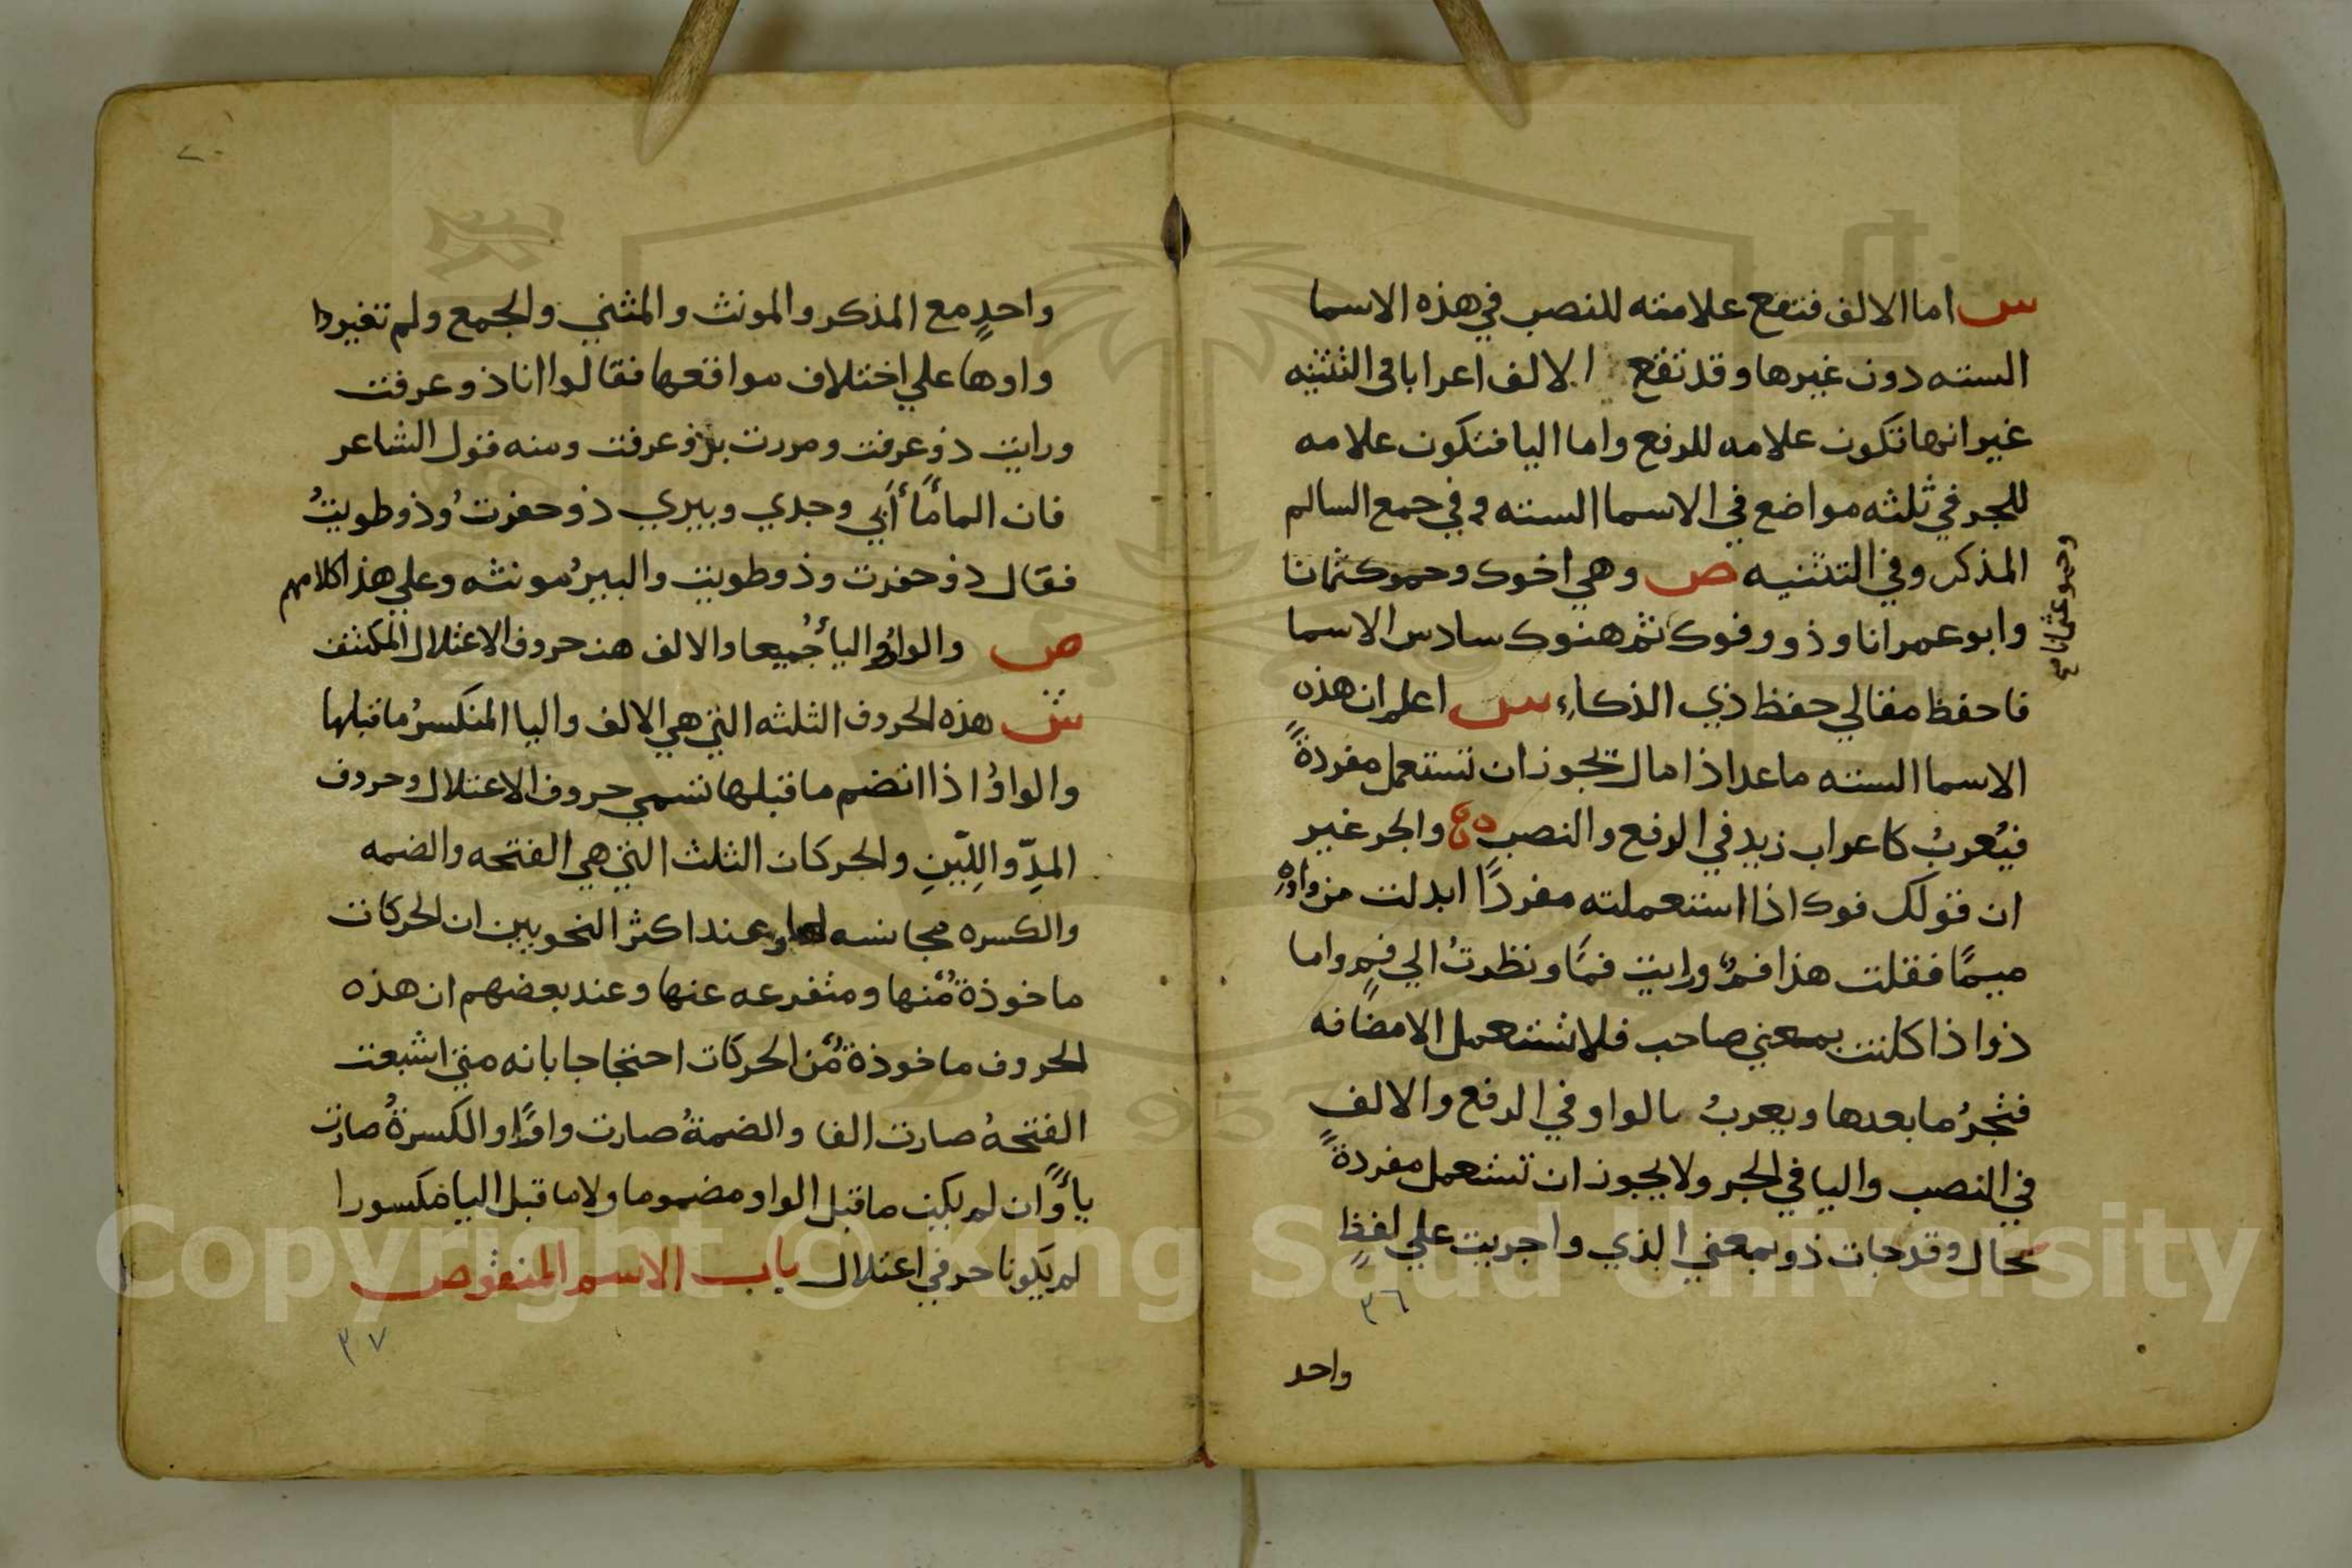 س اما الالف فتقع علامته للنصب في هذه الاسما
السته دون غيرها وقد تقع الالف اعرابا في التثنيه
غير انها تكون علامه للرفع واما اليا فتكون علامه
للجر في ثلثه مواضع في الاسما السته وفي جمع السالم
المذكر وفي التثنيه ص وهي اخوك وحموكثمانا
وابو عمرانا وذو وفوك ثم هنوك سادس الاسما
وحمو عثمانا صح
فاحفظ مقالي حفظ ذي الذكاءِ س اعلم ان هذه
الاسما السته ما عدا ذا مال تجوز ان تستعمل مفردةً
فيُعربُ كاعراب زيد في الرفع والنصب والجر غير
ان قولك فوك اذا استعملته مفردًا ابدلت من واوه
ميمًا فقلت هذا فمٌ ورايت فمًا ونظرتُ الي فمٍ واما
ذو اذا كانت بمعني صاحب فلا تستعمل الا مضافه
فتجرُ ما بعدها ويعربُ بالواو في الرفع والالف
في النصب واليا في الجر ولا يجوز ان تستعمل مفردةً
بحال وقد جات ذو بمعني الذي واجريت علي لفظٍ
٣٦
واحد
واحدٍ مع المذكر والمونث والمثني والجمع ولم تغير
واوها علي اختلاف مواقعها فقالوا انا ذو عرفت
ورايت ذو عرفت ومررت بذو عرفت ومنه قول الشاعر
فان الماءَ ماءُ أبي وجدي وبيري ذو حفرتُ وذو طويتُ
فقال ذو حفرت وذو طويت والبيرُ مونثه وعلي هذا كلامهم
ص والواوُ واليا جميعا والالف هن حروف الاعتلال المكتنف
ش هذه الحروف الثلثه التي هي الالف واليا المنكسرُ ما قبلها
والواوُ اذا انضم ما قبلها تسمي حروف الاعتلال وحروف
المدِّ واللِيّنِ والحركات الثلث التي هي الفتحه والضمه
والكسره مجانسه لها وعند اكثر النحويين ان الحركات
ماخوذةٌ منها ومتفرعه عنها وعند بعضهم ان هذه
الحروف ماخوذةٌ من الحركات احتجاجا بانه متي اشبعت
الفتحهُ صارت الفا والضمةُ صارت واوًا والكسرةُ صارت
ياءً وان لم يكن ما قبل الواو مضموما ولا ما قبل اليا مكسورا
لم يكونا حرفي اعتلال باب الاسم المنقوص
٣٧
Copyright © King Saud University